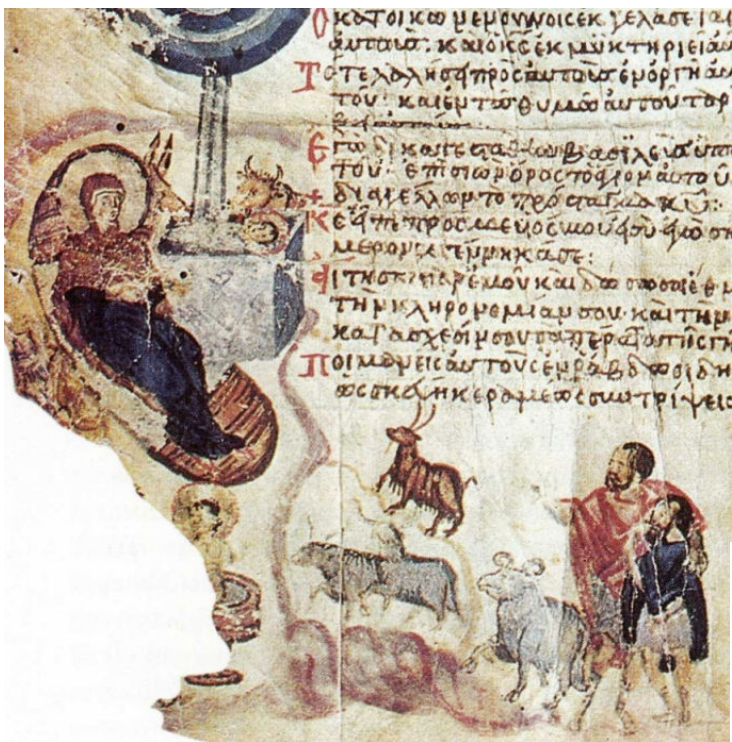 Ὁ κατοικῶν ἐν οὐνοῖς ἐκγελάσεται
αὐτούς· καὶ ὁ κς ἐκμυκτηριεῖ αὐ
Τότε λαλήσει πρὸς αὐτοὺς ἐν ὀργῇ αὐ
τοῦ· καὶ ἐν τῷ θυμῷ αὐτοῦ ταρ
Ἐγὼ δὲ κατεστάθην βασιλεὺς ὑπ
τοῦ· ἐπὶ σιὼν ὄρος τὸ ἅγιον αὐτοῦ
διαγγέλλων τὸ πρόσταγμα κυ:
Κς εἶπε πρός με υἱός μου εἶ σὺ ἐγὼ ση
μερον γεγέννηκά σε:
Αἴτησαι παρ ἐμοῦ καὶ δώσω σοι ἔθν
τὴν κληρονομίαν σου· καὶ τὴν
κατάσχεσίν σου τὰ πέρατα τῆς γῆ
Ποιμανεῖς αὐτοὺς ἐν ῥάβδῳ σιδη
ὡς σκεύη κεραμέως συντρίψεις